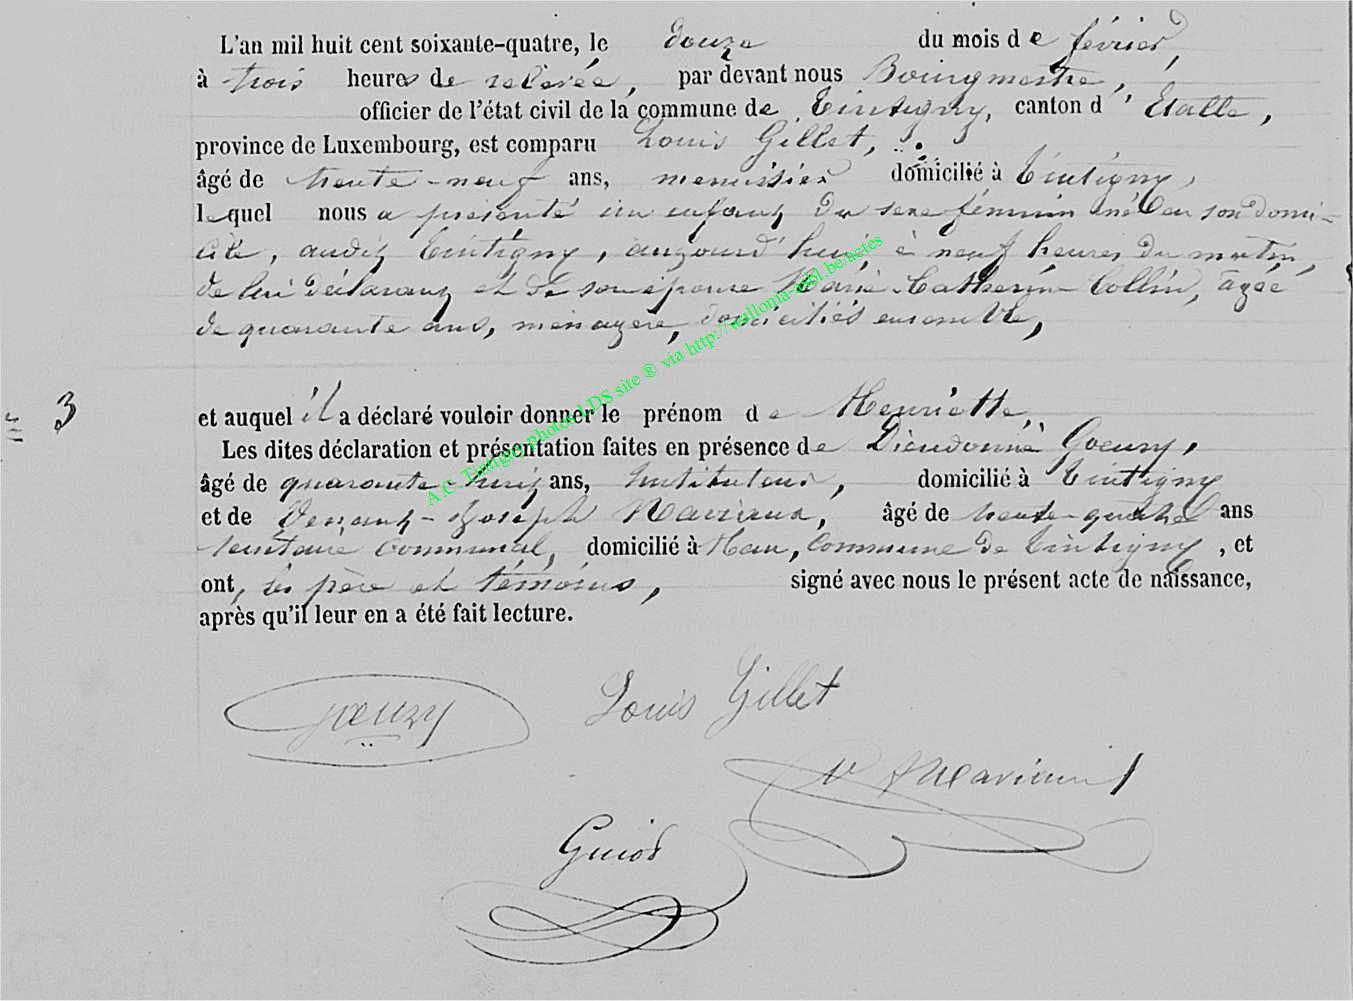 L'an mil huit cent soixante-quatre, le douze du mois de février,
à trois heures de relevée, par devant nous Bourgmestre,
officier de l'état civil de la commune de Tintigny, canton d' Etalle,
province de Luxembourg, est comparu Louis Gillet,
âgé de trente-neuf ans, menuisier domicilié à Tintigny,
lequel nous a présenté un enfant du sexe féminin né en son domi-
cile, audit Tintigny, aujourd'hui, à neuf heures du matin,
de lui déclarant et de son épouse Marie-Catherine Collin, âgée
de quarante ans, ménagère, domiciliés ensemble,
3
et auquel il a déclaré vouloir donner le prénom de Henriette,
Les dites déclaration et présentation faites en présence de Dieudonné Goeury,
âgé de quarante-huit ans, Instituteur, domicilié à Tintigny
et de -Joseph âgé de trente-quatre ans
communal, domicilié à Han, commune de Tintigny, et
ont, les père et témoins, signé avec nous le présent acte de naissance,
après qu'il leur en a été fait lecture.
A.C. Tintigny photos LDS site ® via http://wallonia-asbl.be/actes
Goeury Louis Gillet